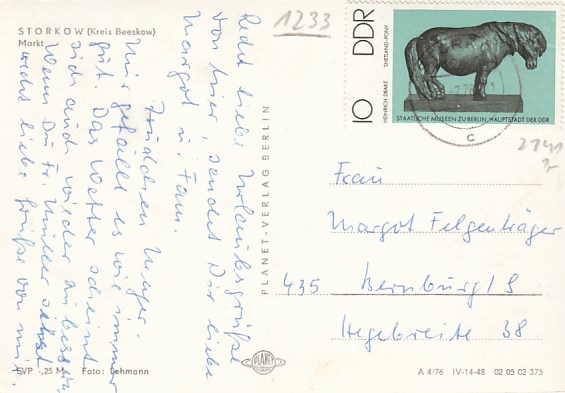 STORKOW (Kreis Beeskow)
Markt
1233
Recht liebe Urlaubsgrüße
von hier, sendet Dir liebe
Margot u. Fam.
Mir gefällt es wie immer
gut. Das Wetter scheint
sich auch wieder zu bessern
Wenn Du Fr. Müller siehst
liebe Grüße von mir.
EVP -,25 M Foto: Lehmann
PLANET-VERLAG BERLIN
PLANET
DDR
10
HEINRICH DRAKE SHETLAND-PONY
STAATLICHE MUSEEN ZU BERLIN, HAUPTSTADT DER DDR
c
2141
Frau
Margot Felgenträger
435 Bernburg/S
Hegebreite 38
A 4/76 IV-14-48 02 05 02 375